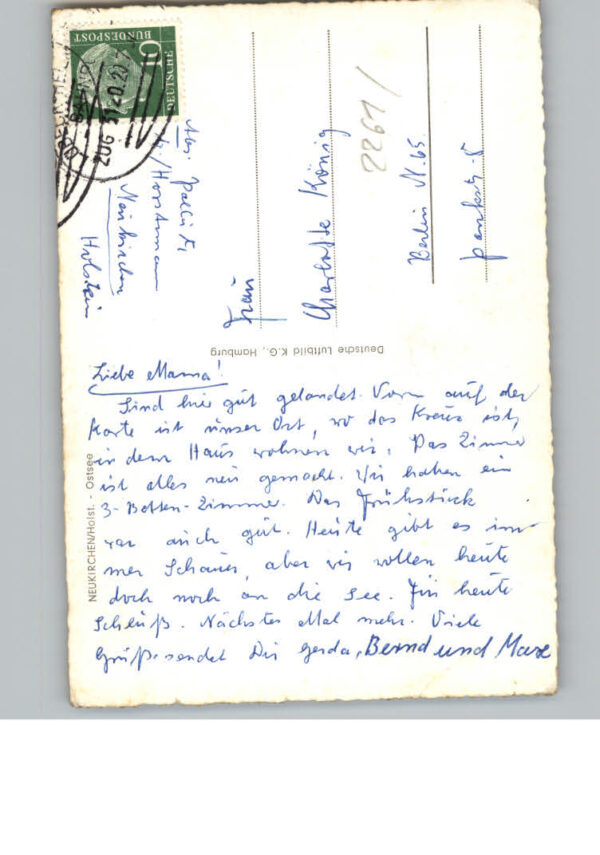 Liebe Mama!
Sind hier gut gelandet. Vorn auf der
Karte ist unser Ort, wo das Kreuz ist,
in dem Haus wohnen wir. Das Zimmer
ist alles neu gemacht. Wir haben ein
3-Betten-Zimmer. Das Frühstück
war auch gut. Heute gibt es im-
mer Schauer, aber wir wollen heute
doch noch an die See. Für heute
Schluß. Nächstes Mal mehr. Viele
Grüße sendet Dir Gerda, Bernd und
NEUKIRCHEN/Holst. - Ostsee
Deutsche Luftbild K.G., Hamburg
DEUTSCHE
BUNDESPOST
10
Abs.
Horstmann
Neukirchen
Holstein
Frau
Charlotte König
Berlin N 65
2261/